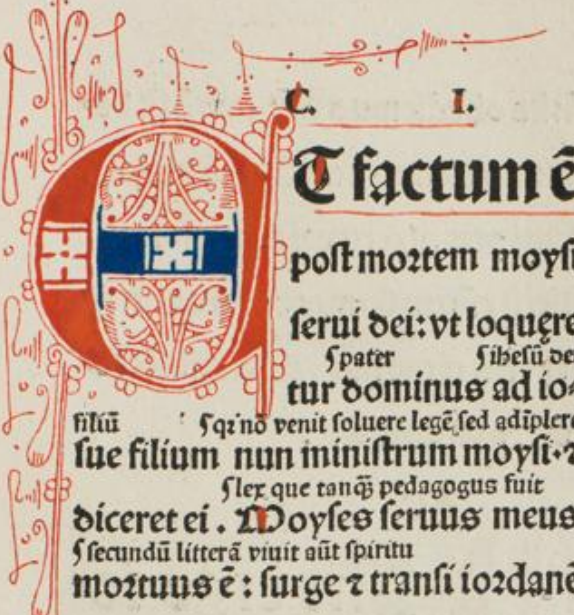 C. I.
ET factum ē
poſt moꝛtem moyſi
ſerui dei: vt loquere
ſpater ſiheſū de
tur dominus ad io⸗
filiū ſqꝛ nō venit ſoluere legē ſed adīplere
ſue filium nun miniſtrum moyſi. ⁊
ſlex que tanq̄ꝫ pedagogus fuit
diceret ei. Moyſes ſeruus meus
ſſecundū litterā viuit aūt ſpiritu
moꝛtuus ē: ſurge ⁊ tranſi ioꝛdanē